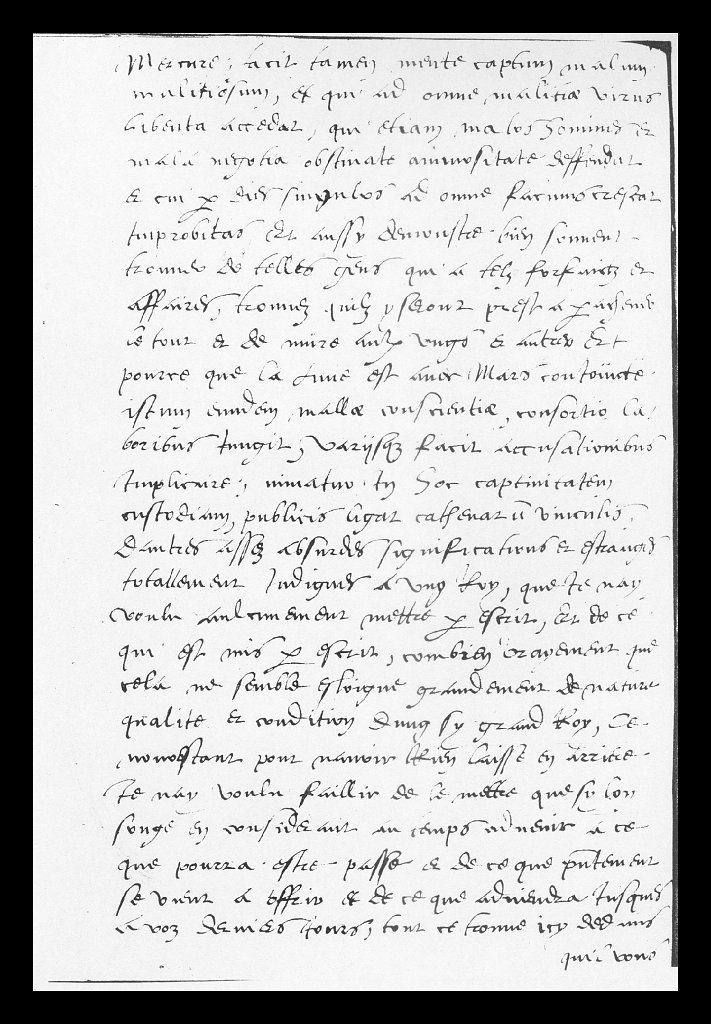 Mercure, facit tamen mente captum malum
malitiosum, et qui ad omne malitiæ virus
libenta accedat, qui etiam malos homines et
mala negotia obstinate animositate deffendat
et cui p dies singulos ad omne facinus crescat
improbitas Et aussy demonstre bien souvent
trouver de telles gens qui a telz forfaictz et
affaires, trouvez quilz y seront prest a p achever
le tout et de nuire aulx ungs et autres Et
pource que la Lune est avec Mars conjoincte
istum eundem mallæ conscientiæ, consortio la-
boribus Jungit, varijsqz facit accusationibus
Implicare, in hoc captivitatem
custodiam, publicis ligat cathenarũ vinculis,
Dautres assez absurdes significations et estranges
totallement Indignes a ung Roy, que Je nay
voulu aulcunement mettre p escrit, Et de ce
qui est mis p escrit, combien vrayement que
cela ne semble esloigne grandement de nature
qualite et condition dung sy grand Roy, Ce
nonostant pour navoir Rien laisse en arriere
Je nay voulu faillir de le mettre que sy lon
songe en considerant au temps advenir a ce
que pourra estre passe et de ce que pñtement
se vient a offrir et de ce que adviendra Jusques
a voz derniers Jours, tout ce trouve icy dedans
qui vous